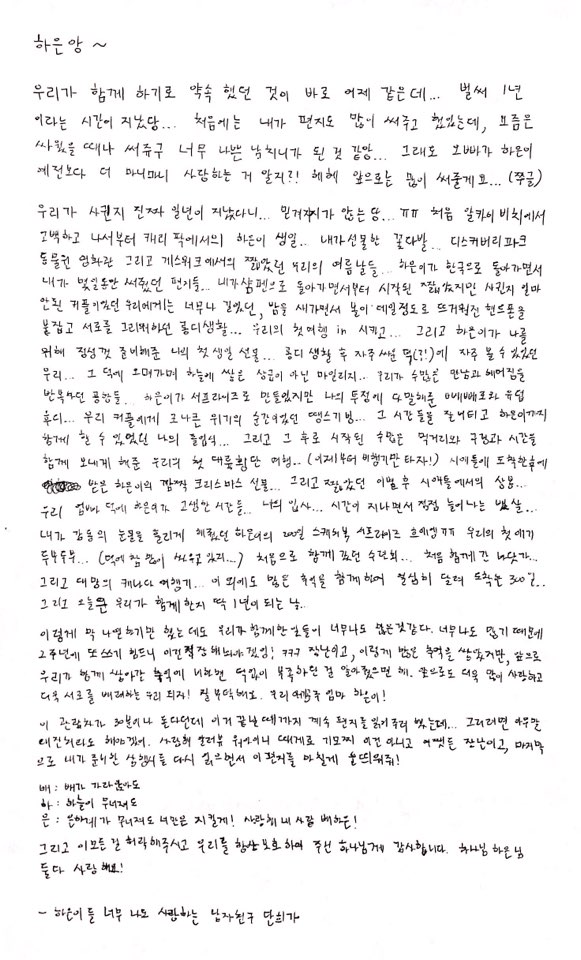 하은앙 ~
우리가 함께 하기로 약속 했던 것이 바로 어제 같은데... 벌써 1년
이라는 시간이 지났당... 처음에는 내가 편지도 많이 써주고 했었는데, 요즘은
싸웠을 때나 써주구 너무 나쁜 남치니가 된 것 같앙... 그래도 오빠가 하은이
예전보다 더 마니마니 사랑하는 거 알지?! 헤헤 앞으로는 많이 써줄게요... (쭈글)
우리가 사귄지 진짜 일년이 지났다니... 믿겨지지가 않는당... ㅠㅠ 처음 알카이 비치에서
고백하고 나서부터 캐리 팍에서의 하은이 생일... 내가 선물한 꽃다발... 디스커버리 파크
동물원 영화관 그리고 게스워크에서의 짧았던 우리의 여름날들... 하은이가 한국으로 돌아가면서
내가 몇일동안 써줬던 편지들... 내가 돌아가면서부터 시작된 짧았지만 사귄지 얼마
안된 커플이었던 우리에게는 너무나 길었던, 밤을 새가면서 볼이 데일정도로 뜨거워진 핸드폰을
붙잡고 서로를 그리워하던 롱디생활... 우리의 첫여행 in 시카고... 그리고 하은이가 나를
위해 정성껏 준비해준 나의 첫 생일 선물... 롱디 생활 후 자주 싸운 덕(?)에 자주 볼 수 있었던
우리... 그 덕에 오며가며 하늘에 쌓은 상금이 아닌 마일리지... 우리가 수많은 만남과 헤어짐을
반복하던 공항들... 하은이가 서프라이즈로 만들었지만 나의 투정에 다 말해준 빼빼로와 유덥
후디... 우리 커플에게 크나큰 위기의 순간이었던 땡스기빙... 그 시간들을 잘 버티고 하은이까지
함께 할 수 있었던 나의 졸업식... 그리고 그 후로 시작된 수많은 먹거리와 구경과 시간을
함께 보내게 해준 우리의 첫 대륙횡단 여행.. (이제부터 비행기만 타자!) 시애틀에 도착한후에
받은 하은이의 깜짝 크리스마스 선물... 그리고 짧았던 이별 후 시애틀에서의 상봉...
우리 엄빠 덕에 하은이가 고생한 시간들.. 나의 입사... 시간이 지나면서 점점 늘어나는 뱃살...
내가 감동의 눈물을 흘리게 해줬던 하은이의 200일 스케치북 서프라이즈 흐에엥ㅠㅠ 우리의 첫 애기
두부두부... (덕에 참 많이 싸웠었지...) 처음으로 함께 갔던 수련회... 처음 함께 간 바닷가...
그리고 대망의 캐나다 여행기... 이 외에도 많은 추억을 함께하며 열심히 달려 도착한 300일..
그리고 오늘은 우리가 함께한지 딱 1년이 되는 날..
이렇게 막 나열하기만 했는데도 우리가 함께한 일들이 너무나도 많은것같다. 너무나도 많기 때문에
2주년에 또 쓰기 힘드니 이건 저장해놔야겠엉! ㅋㅋㅋ 장난이고, 이렇게 많은 추억을 쌓았지만, 앞으로
우리가 함께 쌓아갈 추억에 비하면 턱없이 부족하단 걸 알아줬으면 해. 앞으로도 더욱 많이 사랑하고
더욱 서로를 배려하는 우리 되자! 잘 부탁해요. 우리 예쁜 하은이!
이 관람차가 30분이나 돈다던데 이거 끝날 때까지 계속 편지를 읽어주려 했는데... 그러려면 아무말
대잔치라도 해야겠어. 사랑해 알러뷰 워아이니 때게로 기모찌 이건 아니고 어쨌든 장난이고, 마지막
으로 내가 준비한 삼행시를 다시 읽으면서 이 편지를 마칠게 운띄워줘!
배 : 배가 가라앉아도
하 : 하늘이 무너져도
은 : 은하계가 무너져도 너만은 지킬게! 사랑해 내 사랑 배하은!
그리고 이 모든 걸 허락해주시고 우리를 항상 보호하여 주신 하나님께 감사합니다. 하나님 하은님
둘다 사랑해요!
- 하은이를 너무 나도 사랑하는 남자친구 단희가